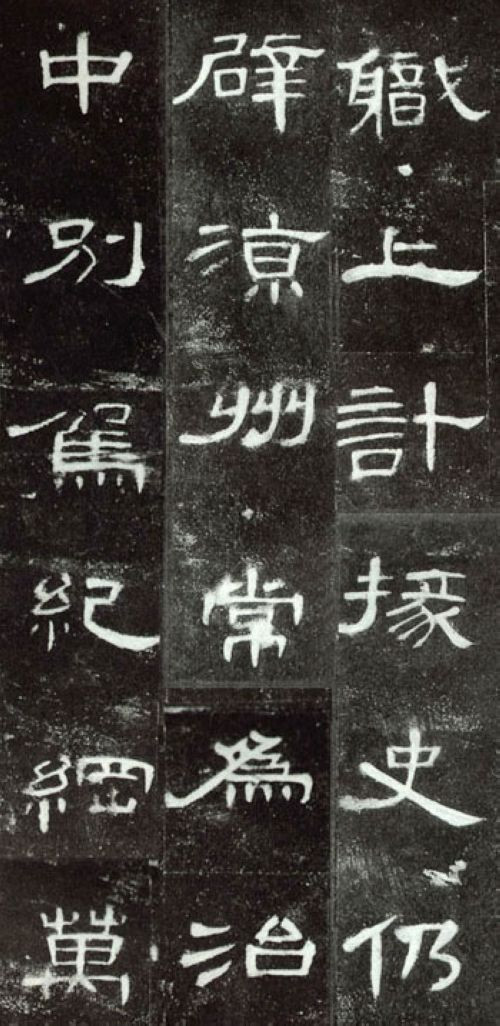 職上計掾史仍
辟涼州常為治
中別駕紀綱萬